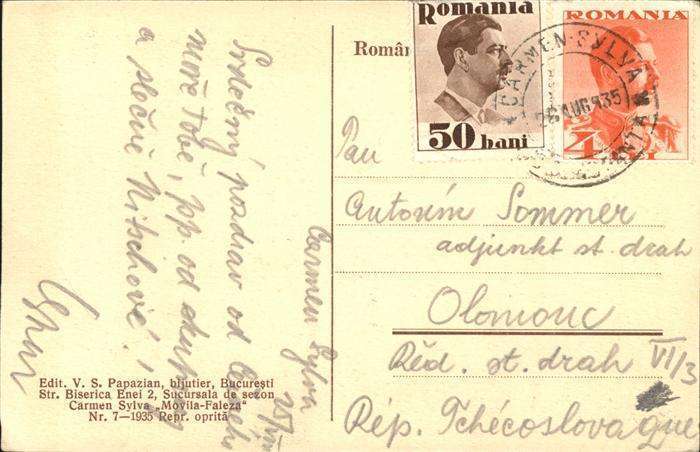 Romania
50 bani
ROMANIA
4
CARMEN-SYLVA
AUG 935
Român
Pan
Antonín Sommer
adjunkt st. drah
Olomouc
Řed. st. drah VI/3
Rép. Tchécoslovaque
Carmen Sylva
Srdečný pozdrav od
moře Tobě, pp. od
a slečně Nitschové!
Edit. V. S. Papazian, bijutier, Bucureşti
Str. Biserica Enei 2, Sucursala de sezon
Carmen Sylva „Movila-Faleza"
Nr. 7—1935 Repr. oprită